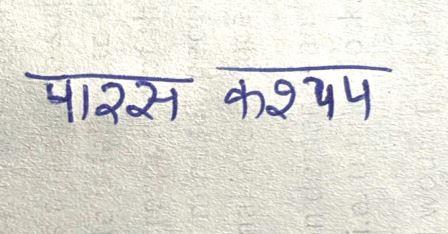 पारस कश्यप